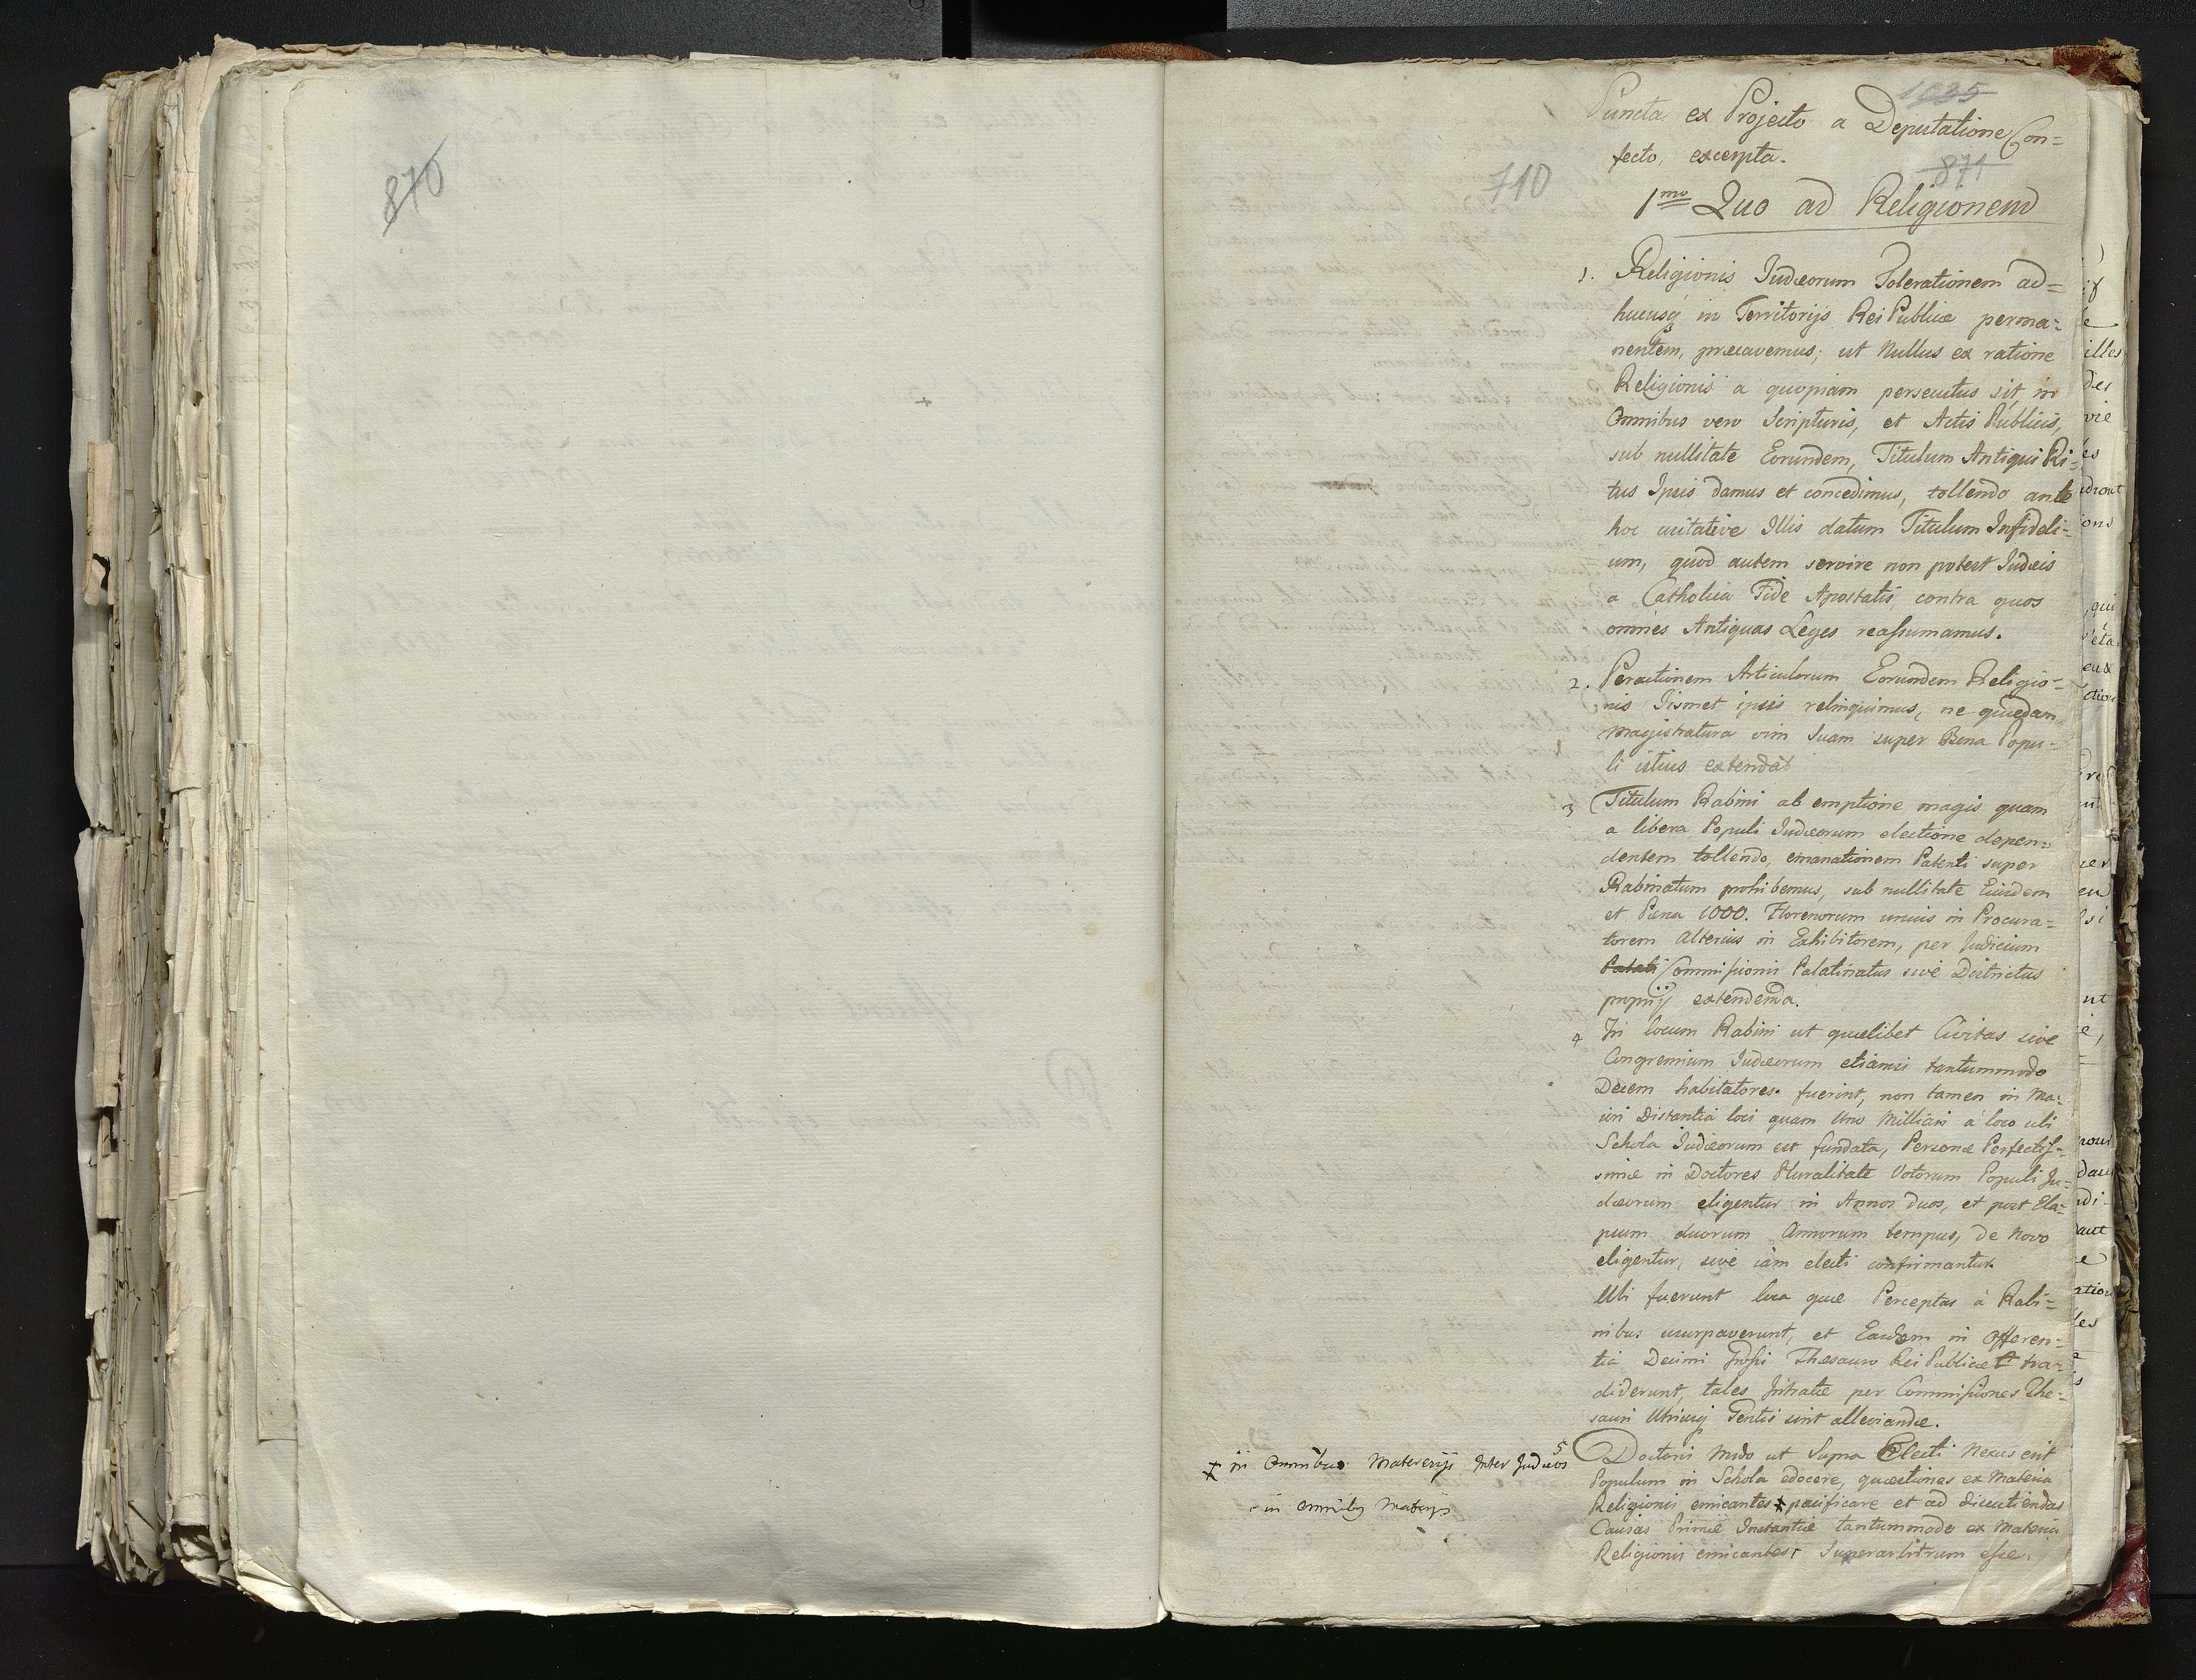 870
1035
710
871
Puncta ex Projecto a Deputatione Con=
fecto, excerpta.
1mo Quo ad Religionem
1. Religionis Judæorum Tolerationem ad=
hucusq in Territorijs Rei Publicæ perma=
nentem, præcavemus; ut Nullus ex ratione
Religionis a quopiam persecutus sit, in
Omnibus vero Scripturis, et Actis Publicis,
sub nullitate Eorundem, Titulum Antiqui Ri=
tus Ipsis damus et concedimus, tollendo ante
hoc usitative Illis datum Titulum Infideli=
um, quod autem servire non potest Judæis
a Catholica Fide Apostatis, contra quos
omnes Antiquas Leges reassumamus.
2. Peractionem Articulorum Eorundem Religio=
nis Iismet ipsis relinquimus, ne quædam
Magistratura vim Suam super Bona Popu=
li istius extendat
3 Titulum Rabini ab emptione magis quam
a libera Populi Judæorum electione depen=
dentem tollendo, emanationem Patenti super
Rabinatum prohibemus, sub nullitate Eiusdem
et Pæna 1000. Florenorum unius in Procura=
torem Alterius in Exhibitorem, per Judicium
Palati Commissionis Palatinatus sive Districtus
proprij extendenda.
4 In locum Rabini ut quælibet Civitas sive
Congremium Judæorum etiamsi tantummodo
Decem habitatores fuerint, non tamen in Ma=
iori Distantia loci quam Uno Milliari à loco ubi
Schola Judæorum est fundata, Personæ Perfectis=
simæ in Doctores Pluralitate Votorum Populi Ju=
dæorum eligentur in Annos duos, et post Ela=
psum duorum Annorum tempus, de Novo
eligentur, sive iàm electi confirmantur.
Ubi fuerunt loca quæ Perceptas à Rabi=
nibus usurpaverunt, et Easdem in Offeren=
tia Decimi Grossi Thesauro Rei Publicæ tra=
diderunt, tales Intratæ per Commissiones The=
sauri Utriusq Gentis sint alleviandæ.
5 Doctoris Modo ut Supra Electi Nexus erit
Populum in Schola edocere, quæstiones ex Materia
Religionis emicantes ‡ pacificare et ad discutiendas
Causas Primæ Instantiæ tantummodo ex Materia
Religionis emicantes Superarbitrum esse.
‡ in Omnibus Materijs Inter Judæos
in omnibq Materijs